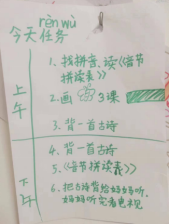 rèn wù
今天任务
上午
1. 找拼音、读《音节
拼读表》
2. 画 3课
3. 背一首古诗
下午
4. 背一首古诗
5.《音节拼读表》
6. 把古诗背给妈妈听,
妈妈听完看电视